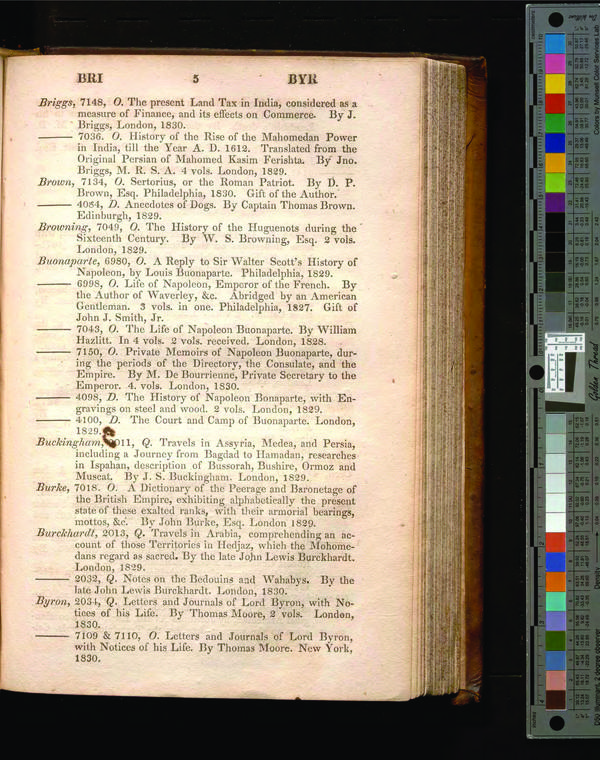 BRI 5 BYR
Briggs, 7148, O. The present Land Tax in India, considered as a
measure of Finance, and its effects on Commerce. By J.
Briggs, London, 1830.
——— 7036. O. History of the Rise of the Mahomedan Power
in India, till the Year A. D. 1612. Translated from the
Original Persian of Mahomed Kasim Ferishta. By Jno.
Briggs, M. R. S. A. 4 vols. London, 1829.
Brown, 7134, O. Sertorius, or the Roman Patriot. By D. P.
Brown, Esq. Philadelphia, 1830. Gift of the Author.
——— 4054, D. Anecdotes of Dogs. By Captain Thomas Brown.
Edinburgh, 1829.
Browning, 7049, O. The History of the Huguenots during the
Sixteenth Century. By W. S. Browning, Esq. 2 vols.
London, 1829.
Buonaparte, 6980, O. A Reply to Sir Walter Scott's History of
Napoleon, by Louis Buonaparte. Philadelphia, 1829.
——— 6998, O. Life of Napoleon, Emperor of the French. By
the Author of Waverley, &c. Abridged by an American
Gentleman. 3 vols. in one. Philadelphia, 1827. Gift of
John J. Smith, Jr.
——— 7043, O. The Life of Napoleon Buonaparte. By William
Hazlitt. In 4 vols. 2 vols. received. London, 1828.
——— 7150, O. Private Memoirs of Napoleon Buonaparte, dur-
ing the periods of the Directory, the Consulate, and the
Empire. By M. De Bourrienne, Private Secretary to the
Emperor. 4. vols. London, 1830.
——— 4098, D. The History of Napoleon Bonaparte, with En-
gravings on steel and wood. 2 vols. London, 1829.
——— 4100, D. The Court and Camp of Buonaparte. London,
1829.
Buckingham, 011, Q. Travels in Assyria, Medea, and Persia,
including a Journey from Bagdad to Hamadan, researches
in Ispahan, description of Bussorah, Bushire, Ormoz and
Muscat. By J. S. Buckingham. London, 1829.
Burke, 7018. O. A Dictionary of the Peerage and Baronetage of
the British Empire, exhibiting alphabetically the present
state of these exalted ranks, with their armorial bearings,
mottos, &c. By John Burke, Esq. London 1829.
Burckhardt, 2013, Q. Travels in Arabia, comprehending an ac-
count of those Territories in Hedjaz, which the Mohome-
dans regard as sacred. By the late John Lewis Burckhardt.
London, 1829.
——— 2032, Q. Notes on the Bedouins and Wahabys. By the
late John Lewis Burckhardt. London, 1830.
Byron, 2034, Q. Letters and Journals of Lord Byron, with No-
tices of his Life. By Thomas Moore, 2 vols. London,
1830.
——— 7109 & 7110, O. Letters and Journals of Lord Byron,
with Notices of his Life. By Thomas Moore. New York,
1830.
Golden Thread